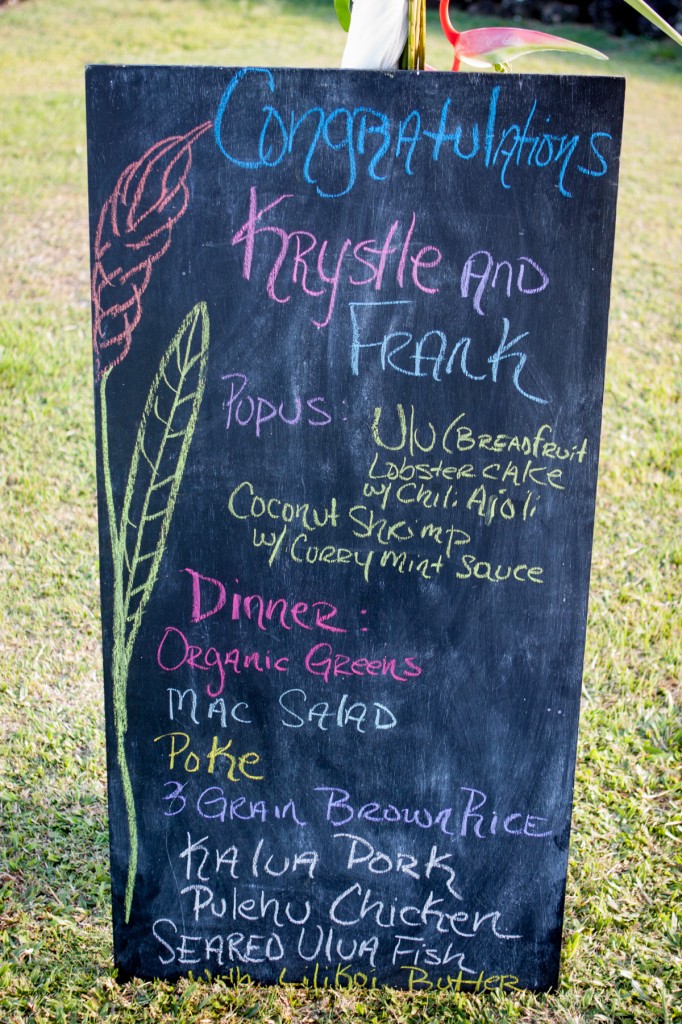 Congratulations
Krystle and
Frank
Pupus: Ulu (Breadfruit
Lobster cake
w/ Chili Aioli
Coconut Shrimp
w/ Curry mint sauce
Dinner:
Organic Greens
Mac Salad
Poke
3 Grain Brown Rice
Kalua Pork
Pulehu Chicken
Seared Ulua Fish
With Lilikoi Butter